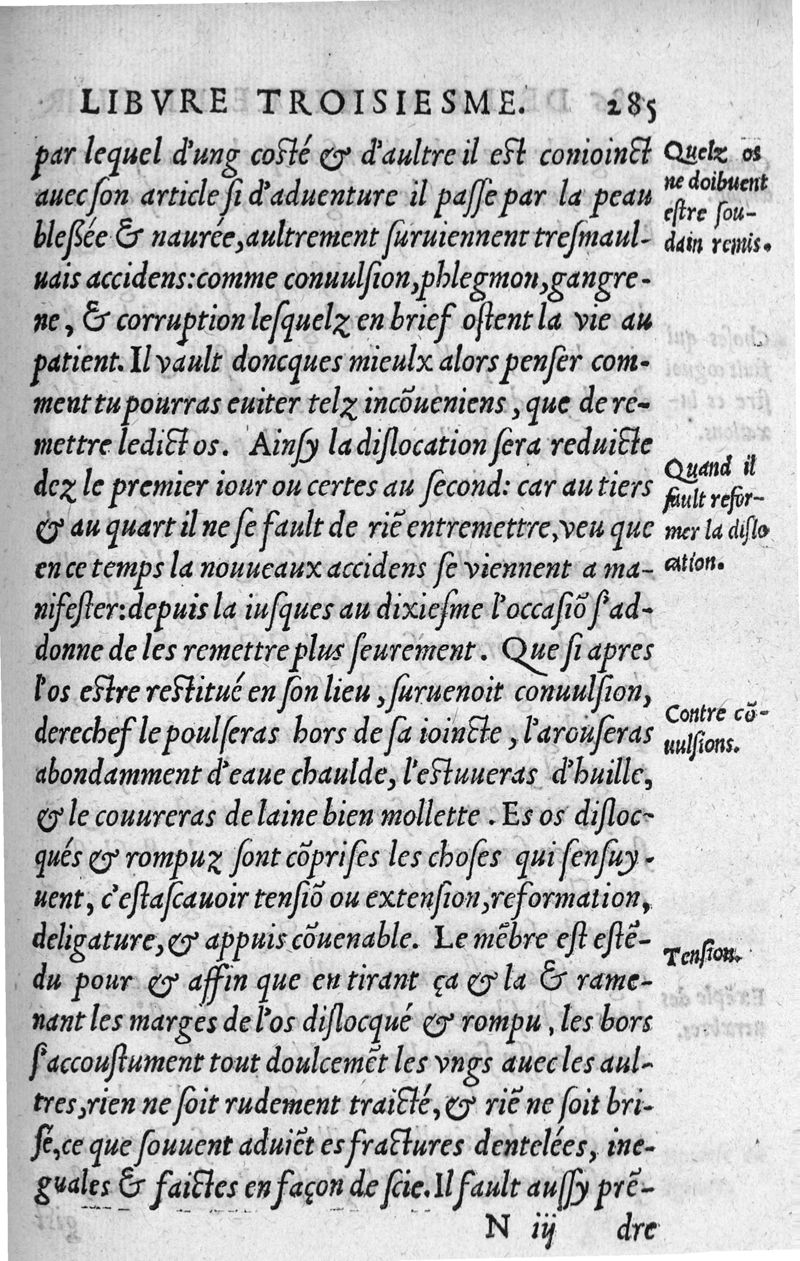 LIBVRE TROISIESME. 285
par lequel d'ung costé & d'aultre il est conioinct
auec son article si d'aduenture il passe par la peau
blessée & naurée, aultrement suruiennent tresmaul-
uais accidens: comme conuulsion, phlegmon, gangre-
ne, & corruption lesquelz en brief ostent la vie au
patient. Il vault doncques mieulx alors penser com-
ment tu pourras euiter telz incōueniens, que de re-
mettre ledict os. Ainsy la dislocation sera reduicte
dez le premier iour ou certes au second: car au tiers
& au quart il ne se fault de riē entremettre, veu que
en ce temps la nouueaux accidens se viennent a ma-
nifester: depuis la iusques au dixiesme l'occasiō s'ad-
donne de les remettre plus seurement. Que si apres
l'os estre restitué en son lieu, suruenoit conuulsion,
derechef le poulseras hors de sa ioincte, l'arouseras
abondamment d'eaue chaulde, l'estuueras d'huille,
& le couureras de laine bien mollette. Es os disloc-
qués & rompuz sont cōprises les choses qui sensuy-
uent, c'estascauoir tensiō ou extension, reformation,
deligature, & appuis cōuenable. Le mēbre est estē-
du pour & affin que en tirant ça & la & rame-
nant les marges de l'os dislocqué & rompu, les bors
s'accoustument tout doulcemēt les vngs auec les aul-
tres, rien ne soit rudement traicté, & riē ne soit bri-
sé, ce que souuent aduiēt es fractures dentelées, ine-
guales & faictes en façon de scie. Il fault aussy prē-
N iij dre
Quelz os
ne doibuent
estre sou-
dain remis.
Quand il
fault refor-
mer la dislo
cation.
Contre cō-
uulsions.
Tension.